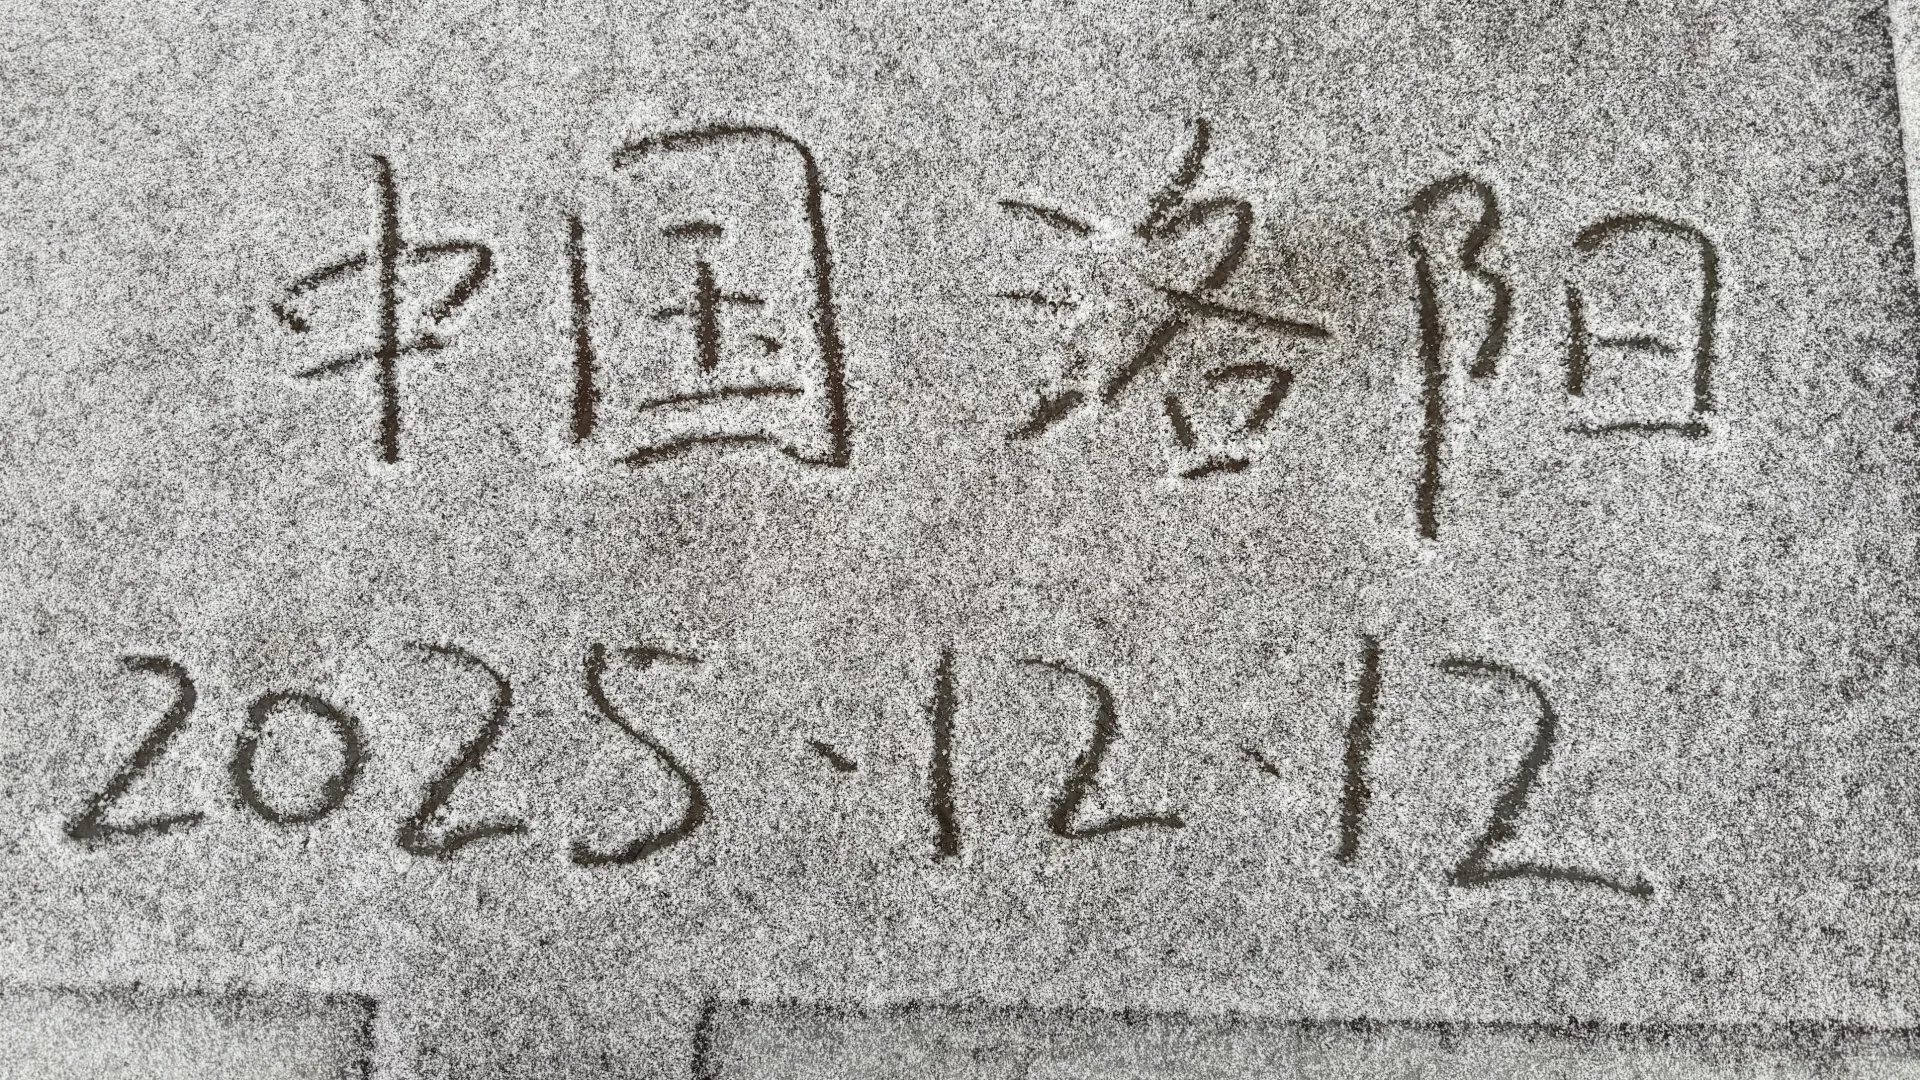 中国 洛阳
2025.12.12